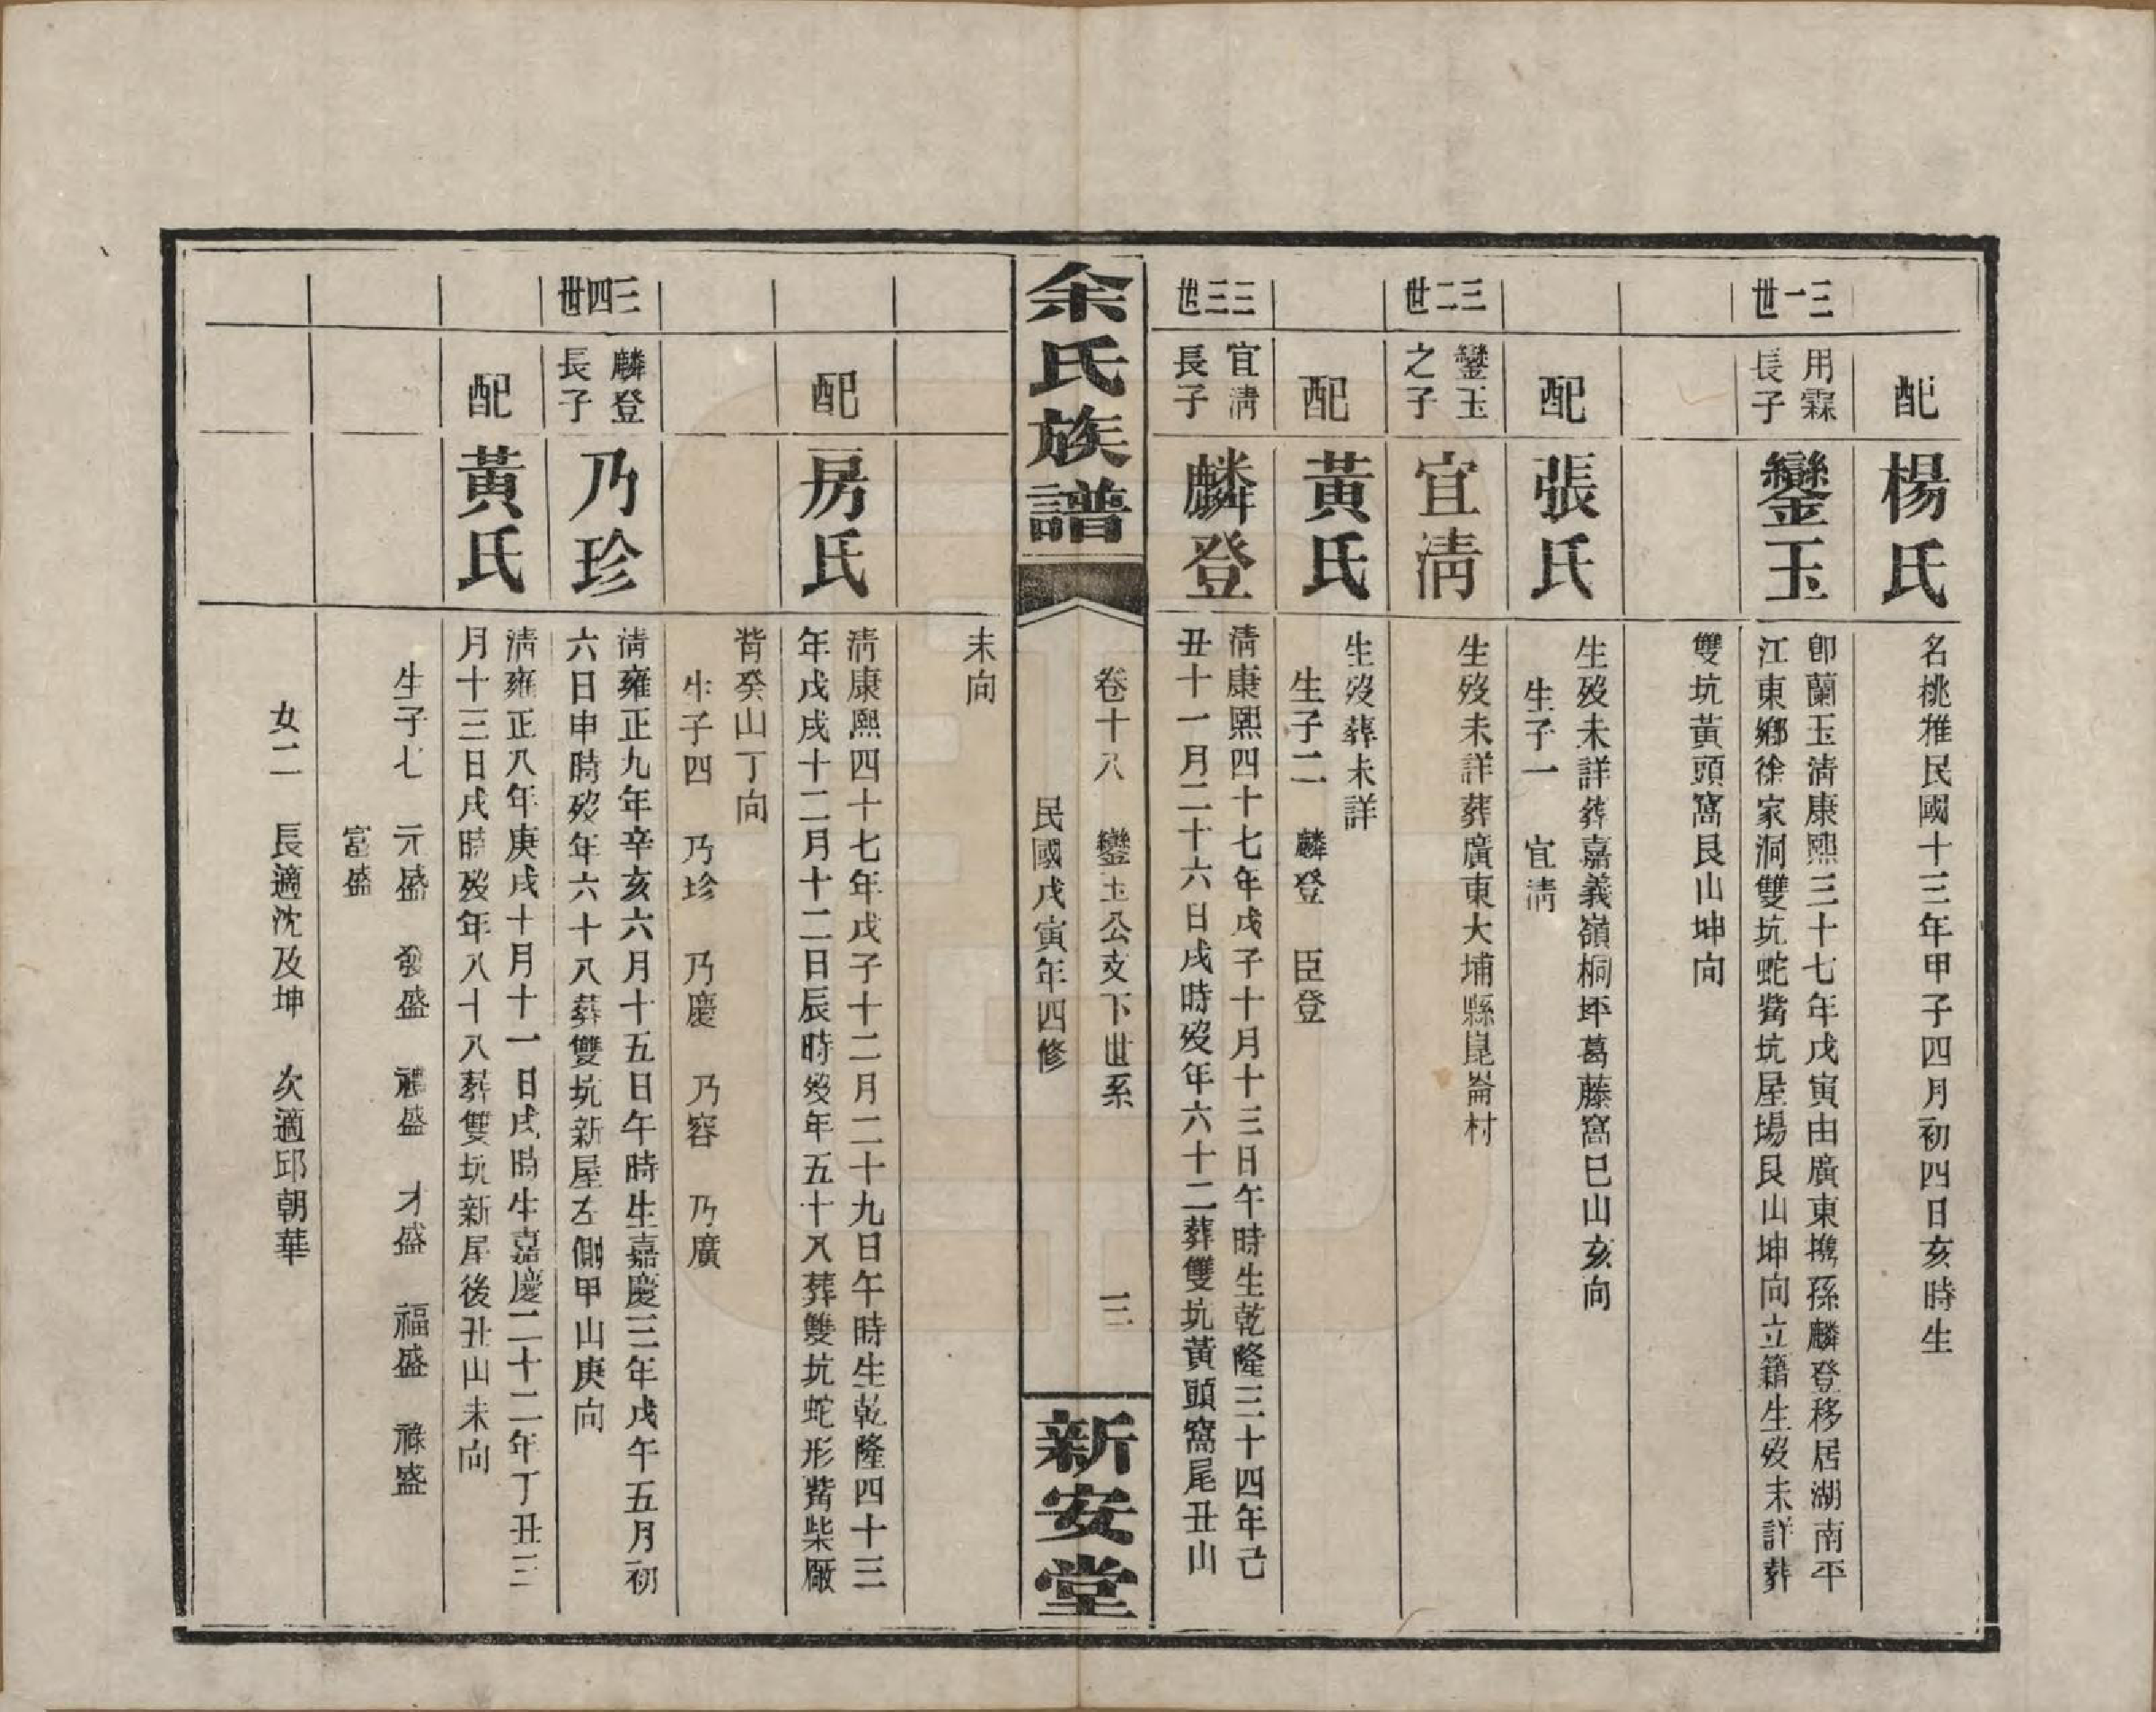 配
楊氏
名桃雅民國十三年甲子四月初四日亥時生
三一世
用霖
長子
鑾玉
卽蘭玉淸康熙三十七年戊寅由廣東攜孫麟登移居湖南平
江東鄉徐家洞雙坑蛇嘴坑屋場艮山坤向立籍生歿未詳葬
雙坑黃頭窩艮山坤向
配
張氏
生歿未詳葬嘉義嶺桐坪葛藤窩巳山亥向
生子一　宜淸
三二世
鑾玉
之子
宜淸
生歿未詳葬廣東大埔縣崑崙村
配
黃氏
生歿葬未詳
生子二　麟登　臣登
三三世
宜淸
長子
麟登
淸康熙四十七年戊子十月十三日午時生乾隆三十四年己
丑十一月二十六日戌時歿年六十二葬雙坑黃頭窩尾丑山
余氏族譜
卷十八　鑾玉公支下世系　三
民國戊寅年四修
新安堂
未向
配
房氏
淸康熙四十七年戊子十二月二十九日午時生乾隆四十三
年戊戌十二月十二日辰時歿年五十八葬雙坑蛇形嘴柴廠
背癸山丁向
生子四　乃珍　乃慶　乃容　乃廣
三四世
麟登
長子
乃珍
淸雍正九年辛亥六月十五日午時生嘉慶三年戊午五月初
六日申時歿年六十八葬雙坑新屋左側甲山庚向
配
黃氏
淸雍正八年庚戌十月十一日戌時生嘉慶二十二年丁丑三
月十三日戌時歿年八十八葬雙坑新屋後丑山未向
生子七　元盛　發盛　禮盛　才盛　福盛　祿盛
富盛
女二　長適沈及坤　次適邱朝華